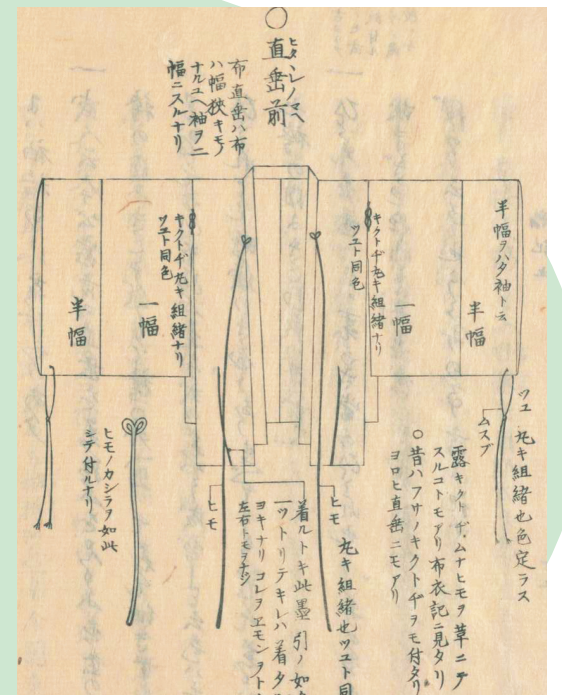 ○直垂前
ヒタヽレノマヘ
布直垂ハ布
ハ幅狭キモノ
ナルユヘ袖ヲ二
幅ニスルナリ
半幅ヲハタ袖ト云
半幅
一幅
キクトヂ丸キ組緒ナリ
ツユト同色
キクトヂ丸キ組緒ナリ
ツユト同色
一幅
半幅
ツユ 丸キ組緒也色定ラス
ムスブ
露キクトヂムナヒモヲ草ニテ
スルコトモアリ布衣記ニ見タリ
○昔ハフサノキクトヂヲモ付タリ
ヨロヒ直垂ニモアリ
ヒモ 丸キ組緒也ツユト同
着ルトキ此墨引ノ如ク
一ツトリテキレハ着タ
ヨキナリコレヲエモンヲト
左右トモヲナジ
ヒモ
ヒモノカシラヲ如此
シテ付ルナリ